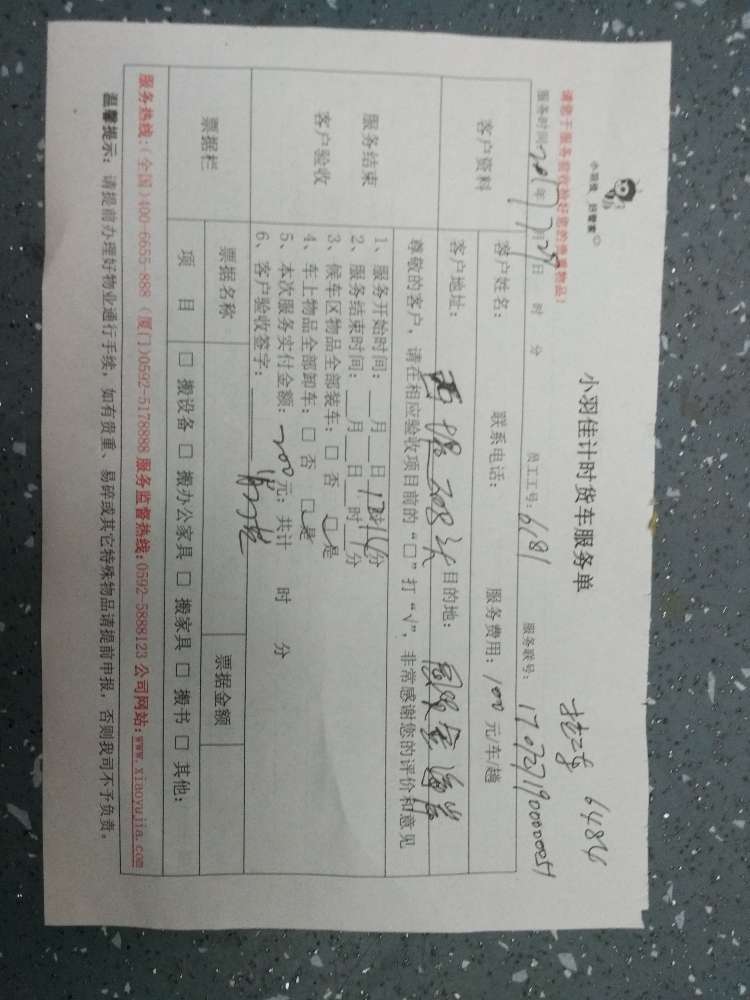 小羽佳 好管家
小羽佳计时货车服务单
6484
请您于服务前收捡好您的贵重物品!
服务时间: 2017年7月29日 时 分 员工工号: 6181 服务联号: 170727190000051
客户资料
客户姓名: 联系电话: 服务费用: 100元/车/趟
客户地址: 西堤 目的地:
服务结束
客户验收
尊敬的客户, 请在相应验收项目前的 “□” 打 “√”, 非常感谢您的评价和意见
1、服务开始时间: __月__日
2、服务结束时间: __月__日__时__分
3、候车区物品全部装车: □ 否 □ 是
4、车上物品全部卸车: □ 否 □ 是
5、本次服务实付金额: 200元; 共计 时 分
6、客户验收签字:
票据栏
票据名称 票据金额
项 目 □ 搬设备 □ 搬办公家具 □ 搬家具 □ 搬书 □ 其他:
服务热线:(全国)400-6655-888 (厦门)0592-5178888 服务监督热线:0592-5888123 公司网站:www.xiaoyujia.com
温馨提示: 请提前办理好物业通行手续, 如有贵重、易碎或其它特殊物品请提前申报, 否则我司不予负责。